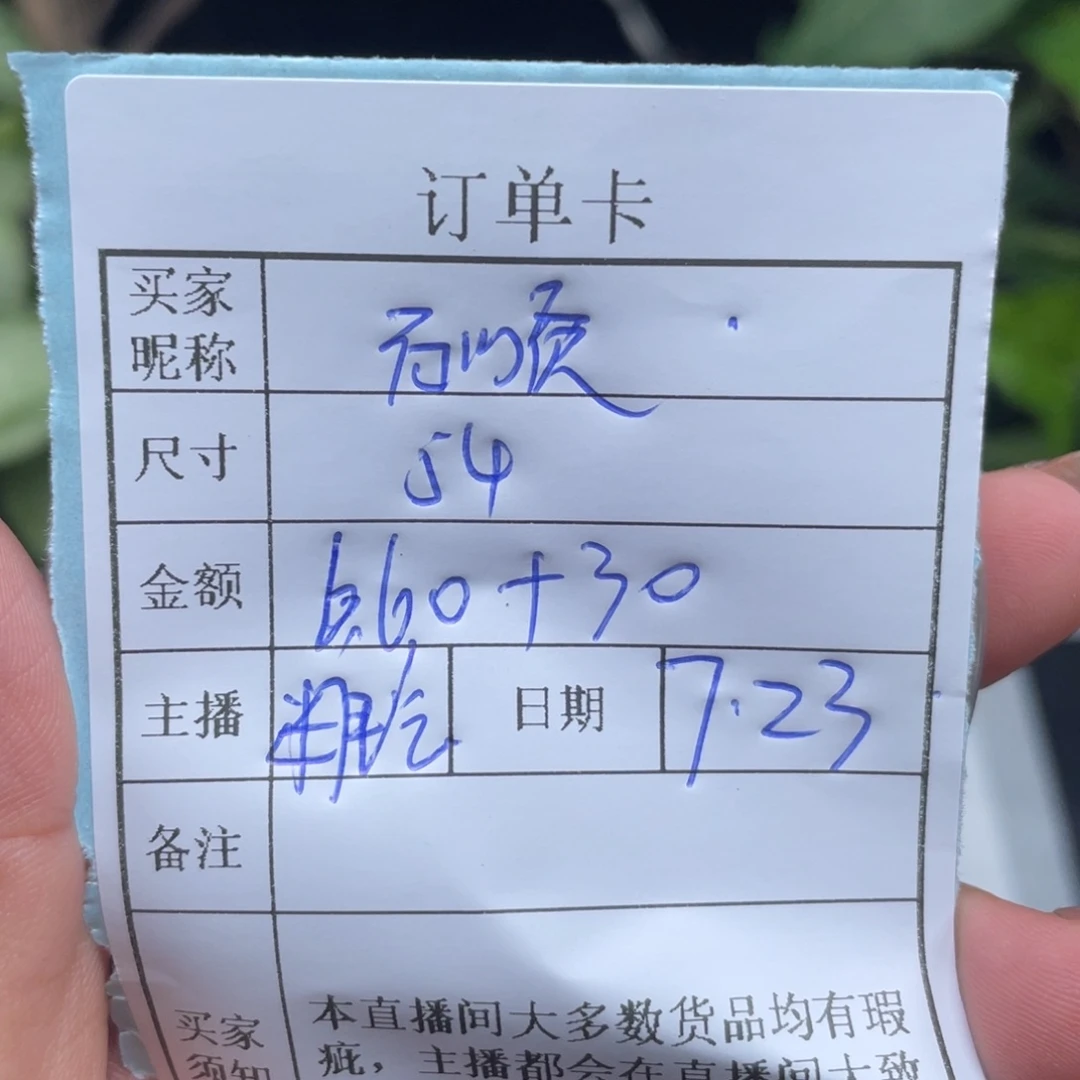 订单卡
买家昵称 百顺
尺寸 54
金额 660+30
主播 日期 7.23
备注
买家须知 本直播间大多数货品均有瑕
疵，主播都会在直播间大致